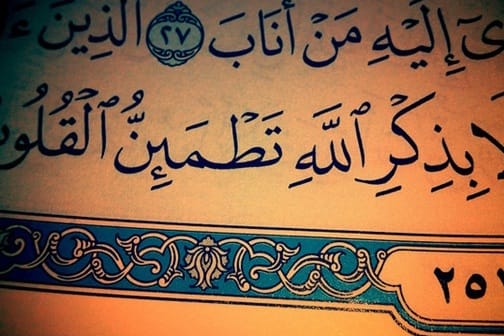 إِلَيْهِ مَنْ أَنَابَ ٢٧ الَّذِينَ
بِذِكْرِ ٱللَّهِ تَطْمَئِنُّ ٱلْقُلُو
٢٥